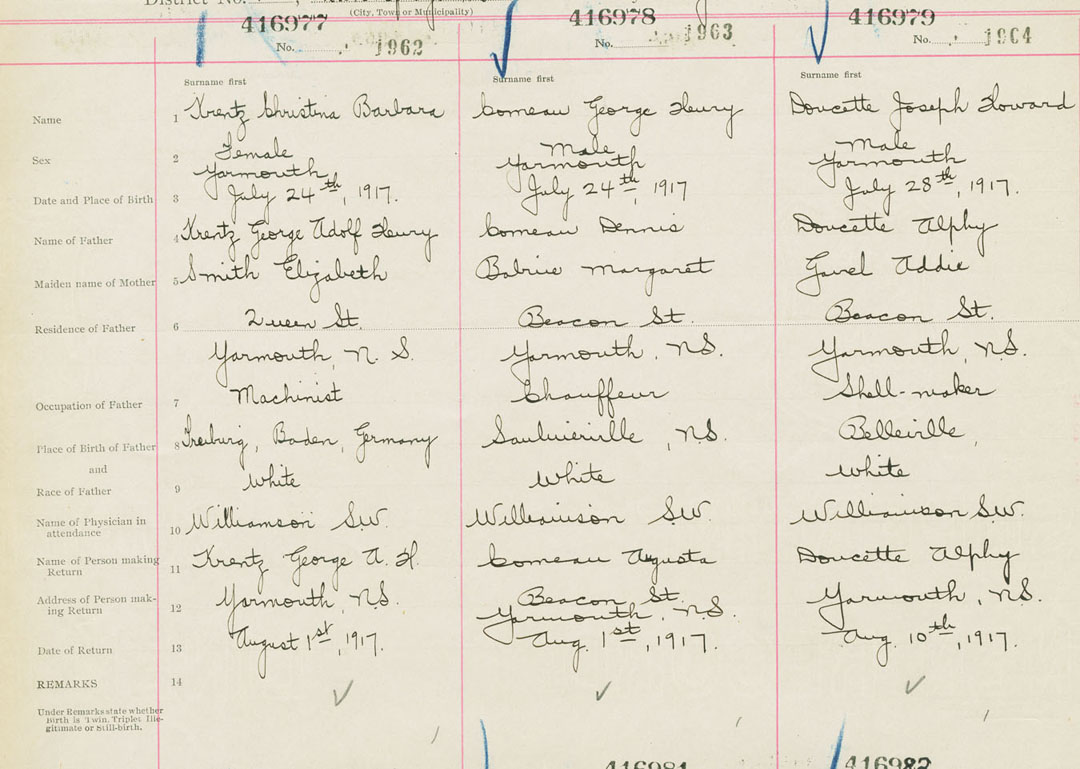 District No.
(City, Town or Municipality)
416977 416978 416979
No. 1962 No. 1963 No. 1964
Surname first Surname first Surname first
Name 1 Krentz Christina Barbara Comeau George Henry Doucette Joseph Howard
Sex 2 Female Male Male
Yarmouth Yarmouth Yarmouth
Date and Place of Birth 3 July 24th, 1917. July 24th, 1917 July 28th, 1917.
Name of Father 4 Krentz George Adolf Henry Comeau Dennis Doucette Alphy
Maiden name of Mother 5 Smith Elizabeth Margaret Gavel Addie
Residence of Father 6 Queen St. Beacon St. Beacon St.
Yarmouth, N. S. Yarmouth, N.S. Yarmouth, N.S.
Occupation of Father 7 Machinist Chauffeur Shell-maker
Place of Birth of Father 8 Freiburg, Baden, Germany Saulnierville, N.S. Belleville,
and
Race of Father 9 White White White
Name of Physician in
attendance 10 Williamson S.W. Williamson S.W. Williamson S.W.
Name of Person making
Return 11 Krentz George A. H. Comeau Augusta Doucette Alphy
Address of Person mak-
ing Return 12 Yarmouth, N.S. Beacon St. Yarmouth, N.S. Yarmouth, N.S.
Date of Return 13 August 1st, 1917. Aug. 1st, 1917. Aug. 10th, 1917.
REMARKS 14
Under Remarks state whether
Birth is Twin, Triplet, Ille-
gitimate or Still-birth.
416981 416982